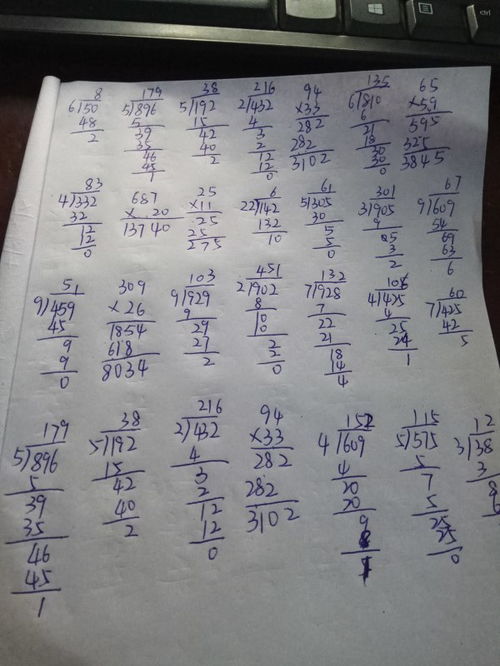 8
6)50
48
2
179
5)896
5
39
35
46
45
1
38
5)192
15
42
40
2
216
2)432
4
3
2
12
12
0
94
×33
282
282
3102
135
6)810
6
21
18
30
30
0
65
×59
595
325
3845
83
4)332
32
12
12
0
687
×20
13740
25
×11
25
25
275
6
22)142
132
10
61
5)305
30
5
5
0
301
3)905
9
5
3
2
67
9)609
54
69
63
6
51
9)459
45
9
9
0
309
×26
1854
618
8034
103
9)929
9
29
27
2
451
2)902
8
10
10
2
2
0
132
7)928
7
22
21
18
14
4
106
4)425
4
25
24
1
60
7)425
42
5
179
5)896
5
39
35
46
45
1
38
5)192
15
42
40
2
216
2)432
4
3
2
12
12
0
94
×33
282
282
3102
152
4)609
4
20
20
9
8
1
115
5)575
5
7
5
25
25
0
12
3)38
3
8
6
ctrl